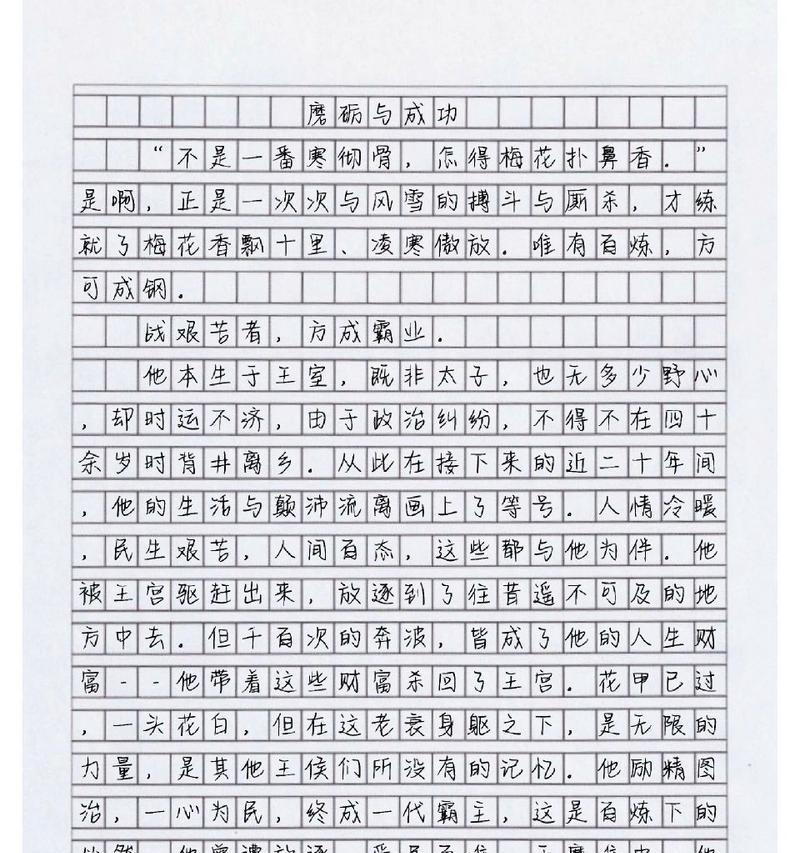 磨砺与成功
“不是一番寒彻骨，怎得梅花扑鼻香.”
是啊，正是一次次与风雪的搏斗与厮杀，才练
就了梅花香飘十里、凌寒傲放.唯有百炼，方
可成钢.
战艰苦者，方成霸业.
他本生于王室，既非太子，也无多少野心
，却时运不济，由于政治纠纷，不得不在四十
余岁时背井离乡.从此在接下来的近二十年间
，他的生活与颠沛流离画上了等号.人情冷暖
，民生艰苦，人间百态，这些都与他为伴.他
被王宫驱赶出来，放逐到了往昔遥不可及的地
方中去.但千百次的奔波，皆成了他的人生财
富--他带着这些财富杀回了王宫.花甲已过
，一头花白，但在这老衰身躯之下，是无限的
力量，是其他王侯们所没有的记忆.他励精图
治，一心为民，终成一代霸主，这是百炼下的